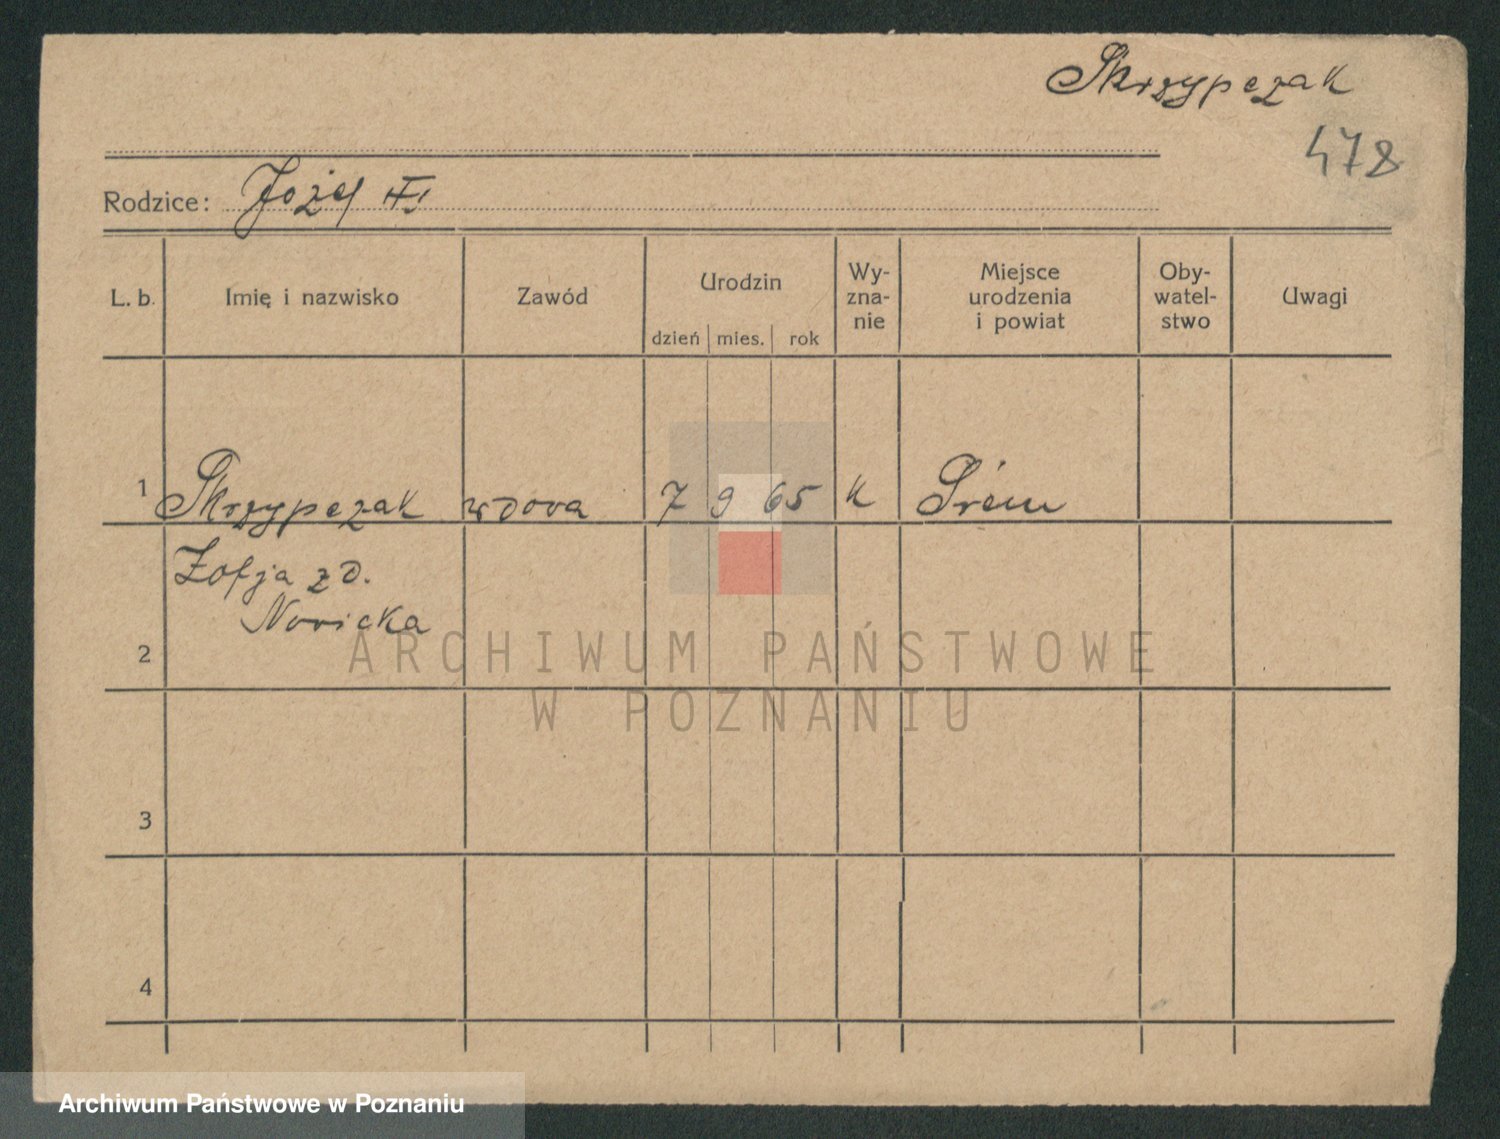 Skrzypczak
478
Rodzice: Józef
L. b. Imię i nazwisko Zawód Urodzin dzień mies. rok Wy-zna-nie Miejsce urodzenia i powiat Oby-watel-stwo Uwagi
1 Skrzypczak wdova 7 9 65 k Śrem
Zofja zd.
Novicka
2
3
4
ARCHIWUM PAŃSTWOWE
W POZNANIU
Archiwum Państwowe w Poznaniu